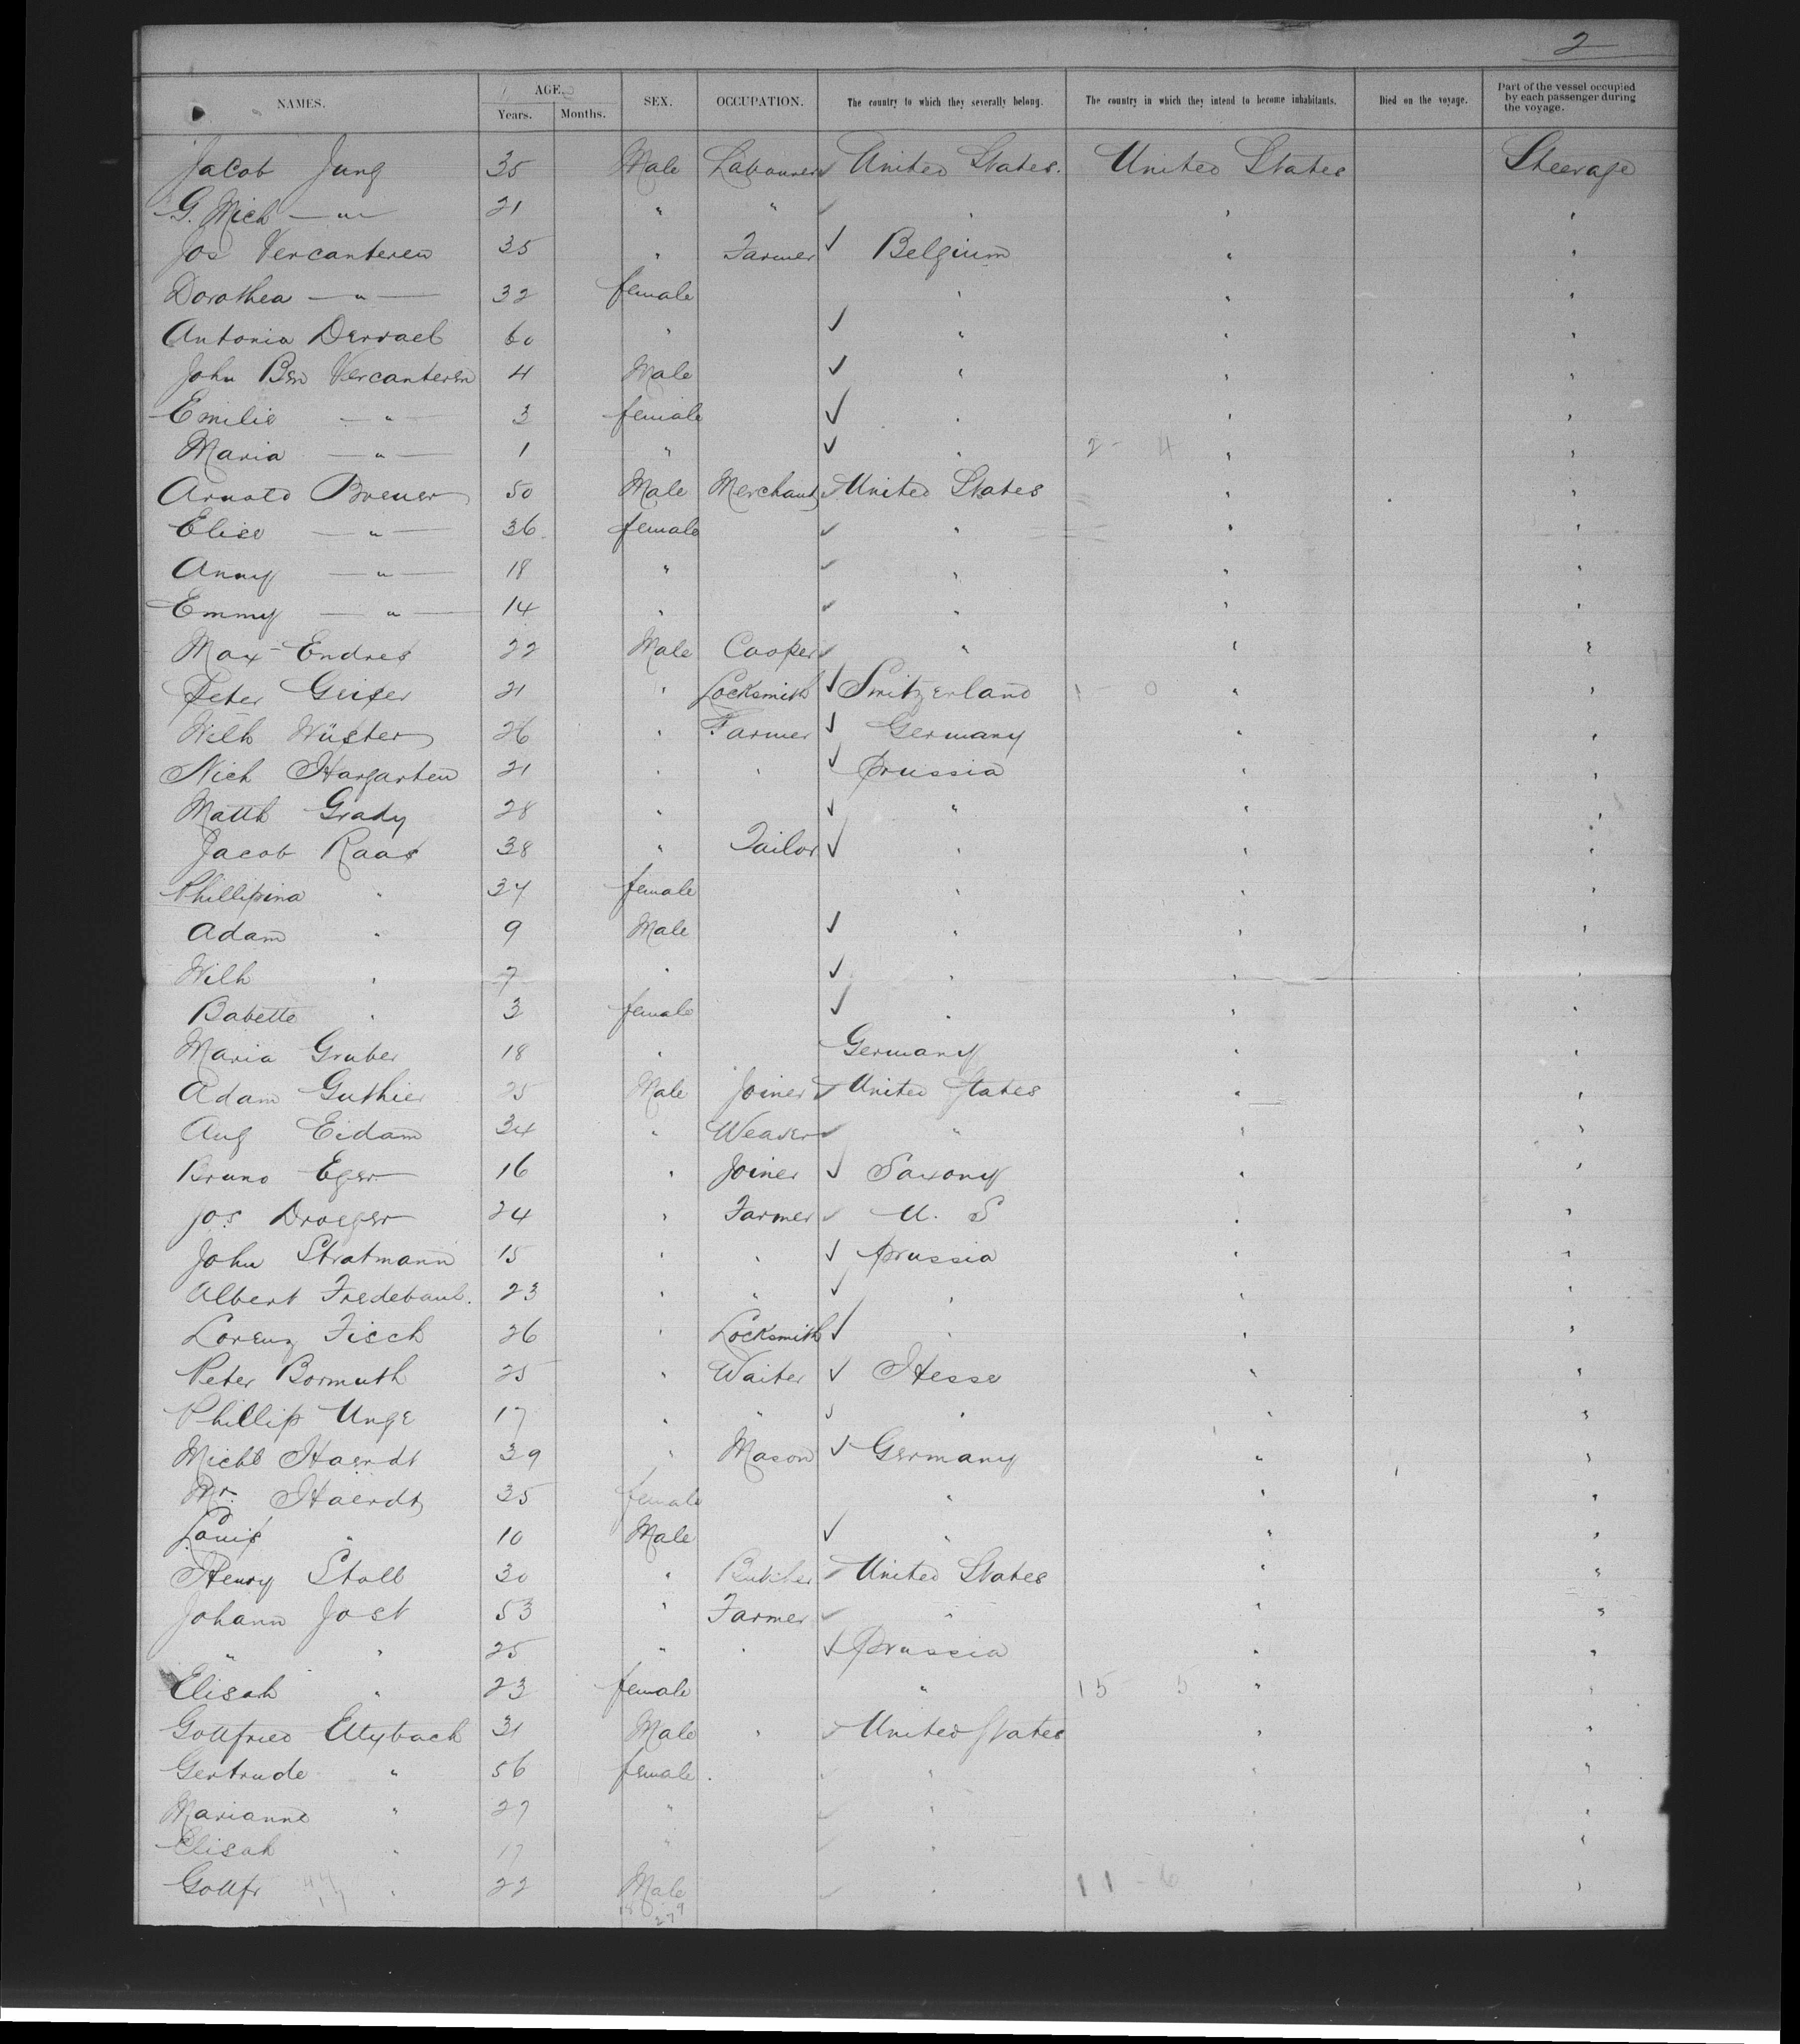 2
NAMES. AGE. Years. Months. SEX. OCCUPATION. The country to which they severally belong. The country in which they intend to become inhabitants. Died on the voyage. Part of the vessel occupied by each passenger during the voyage.
Jacob Jung 35 Male Labourer ✓ United States. United States Steerage
G. Mich — " — 21 " " ✓ " " "
Jos Vercanteren 35 " Farmer ✓ Belgium " "
Dorothea — " — 32 female " " "
Antonia Derrael 60 " ✓ " " "
John Ben Vercanteren 4 Male ✓ " " "
Emilie — " — 3 female ✓ " " "
Maria — " — 1 " ✓ " 2 - 4 " "
Arnold Breuer 50 Male Merchant ✓ United States " "
Elise — " — 36 female ✓ " " "
Anny — " — 18 " ✓ " " "
Emmy — " — 14 " ✓ " " "
Max Endres 22 Male Cooper ✓ " " "
Peter Geiser 21 " Locksmith ✓ Switzerland 1 - 0 " "
Wilh Wüster 26 " Farmer ✓ Germany " "
Nich Hargarten 21 " " ✓ Prussia " "
Matth Grady 28 " ✓ " " "
Jacob Raas 38 " Tailor ✓ " " "
Phillipina " 37 female " " "
Adam " 9 Male ✓ " " "
Wilh " 7 " ✓ " " "
Babette " 3 female ✓ " " "
Maria Gruber 18 " Germany " "
Adam Guthier 25 Male Joiner ✓ United States " "
Aug Eidam 34 " Weaver ✓ " " "
Bruno Eger 16 " Joiner ✓ Saxony " "
Jos Droeger 24 " Farmer ✓ U. S " "
John Stratmann 15 " " ✓ Prussia " "
Albert Fredebaul. 23 " " ✓ " " "
Lorenz Fisch 26 " Locksmith ✓ " " "
Peter Bormuth 25 " Waiter ✓ Hesse " "
Phillip Unge 17 " " ✓ " " "
Michl Haerdt 39 " Mason ✓ Germany " "
Mr. Haerdt 35 female " " "
Louis " 10 Male ✓ " " "
Henry Stoll 30 " Butcher ✓ United States " "
Johann Jost 53 " Farmer ✓ " " "
" " 25 " " ✓ Prussia " "
Elisah " 23 female " 15 5 " "
Gottfried Elybach 31 Male " ✓ United States " "
Gertrude " 56 female ✓ " " "
Marianne " 27 " ✓ " " "
Elisah " 17 " ✓ " " "
Gottfr " 22 Male ✓ " 11 - 6 " "